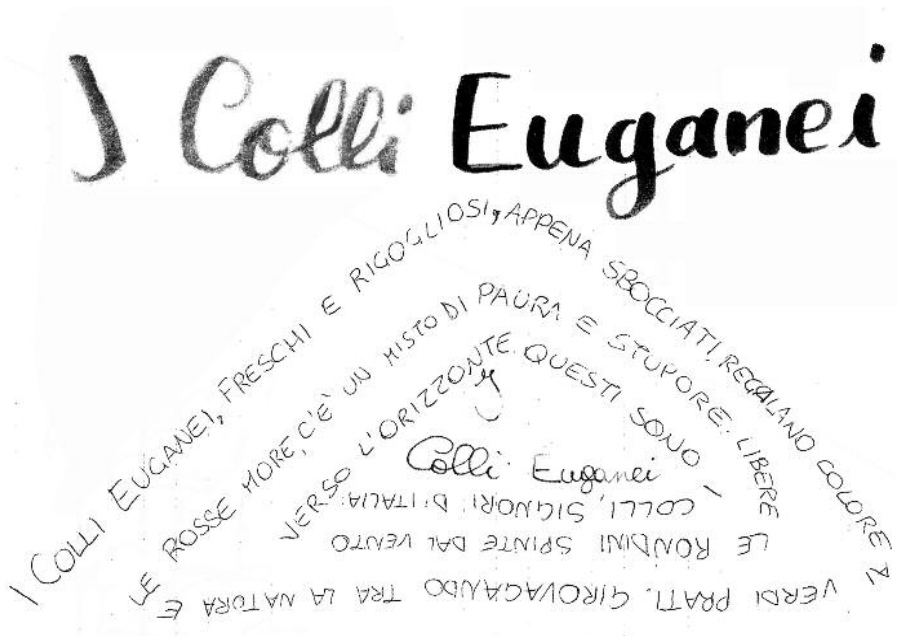 I Colli Euganei
I COLLI EUGANEI, FRESCHI E RIGOGLIOSI, APPENA SBOCCIATI, REGALANO COLORE AI
VERDI PRATI. GIROVAGANDO TRA LA NATURA E
LE ROSSE MORE, C'È UN MISTO DI PAURA E STUPORE. LIBERE
LE RONDINI SPINTE DAL VENTO
VERSO L'ORIZZONTE. QUESTI SONO I
COLLI, SIGNORI D'ITALIA.
I
Colli Euganei